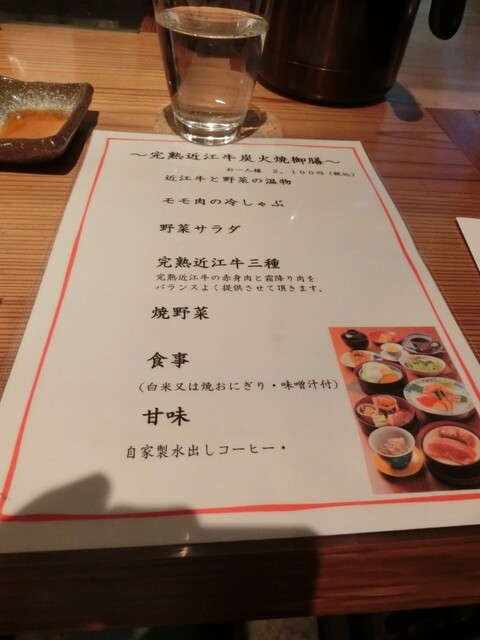 ～完熟近江牛炭火焼御膳～
お一人様 2,100円(税込)
近江牛と野菜の温物
モモ肉の冷しゃぶ
野菜サラダ
完熟近江牛三種
完熟近江牛の赤身肉と霜降り肉を
バランスよく提供させて頂きます。
焼野菜
食事
(白米又は焼おにぎり・味噌汁付)
甘味
自家製水出しコーヒー・